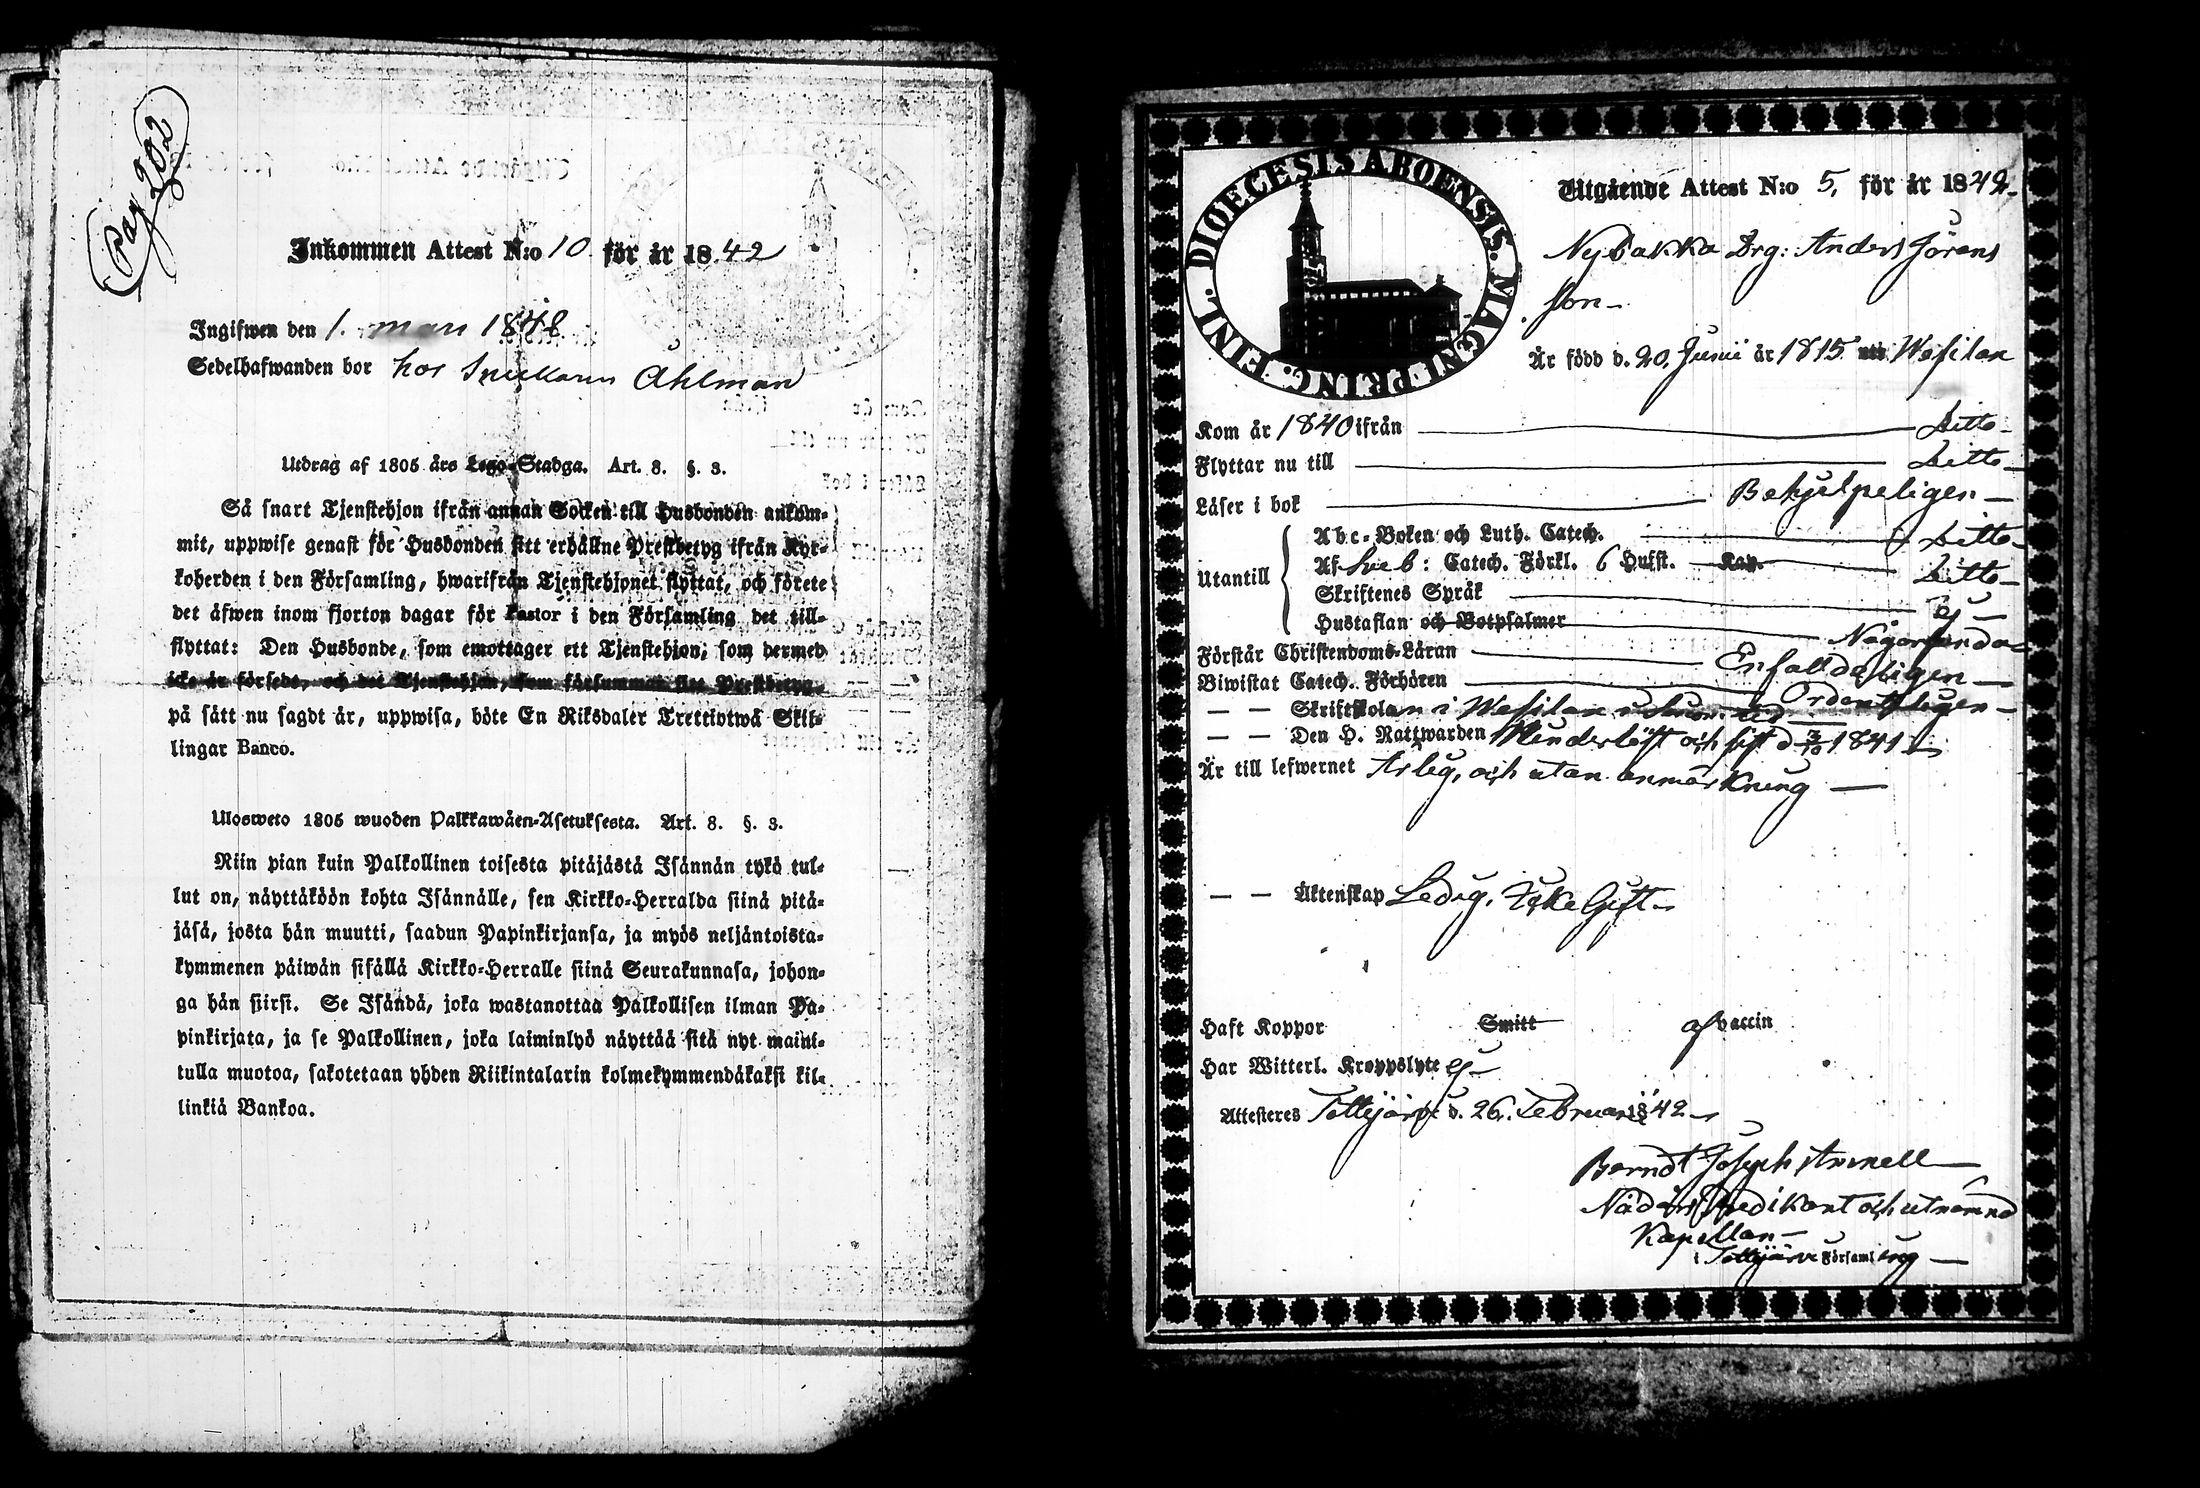 Pag 202
Inkommen Attest N:o 10. för år 1842
Ingifwen den 1. mars 1842
Sedelhafwanden bor hos Åhlman
Utdrag af 1805 års Lego-Stadga. Art. 8. §. 3.
Så snart Tjenstehjon ifrån annan Socken till Husbonden ankom-
mit, uppwise genast för Husbonden sitt erhållne Prestbetyg ifrån Kyr-
koherden i den Församling, hwarifrån Tjenstehjonet flyttat, och förete
det äfwen inom fjorton dagar för Pastor i den Församling det till-
flyttat: Den Husbonde, som emottager ett Tjenstehjon, som dermed
icke är försedt, och det Tjenstehjon, som försummar sitt Prestbetyg,
på sätt nu sagdt är, uppwisa, böte En Riksdaler Trettiotwå Skil-
lingar Banco.
Ulosweto 1805 wuoden Palkkawäen-Asetuksesta. Art. 8. §. 3.
Niin pian kuin Palkollinen toisesta pitäjästä Isännän tykö tul-
lut on, näyttäköön kohta Isännälle, sen Kirkko-Herralda siinä pitä-
jäsä, josta hän muutti, saadun Papinkirjansa, ja myös neljäntoista-
kymmenen päiwän sisällä Kirkko-Herralle siinä Seurakunnasa, johon-
ga hän siirsi. Se Isändä, joka wastanottaa Palkollisen ilman Pa-
pinkirjata, ja se Palkollinen, joka laiminlyö näyttää sitä nyt maini-
tulla muotoa, sakotetaan yhden Riikintalarin kolmekymmendäkaksi kil-
linkiä Bankoa.
FINL. DIOECESIS ABOENSIS. MAGNI PRINC.
Utgående Attest N:o 5, för år 1842.
Nybakka Drg: Anders Jörans
son
Är född d. 20. Junii år 1815 uti Wesilax
Kom år 1840 ifrån Ditto
Flyttar nu till Ditto
Läser i bok Behjelpeligen
Utantill
Abc-Boken och Luth. Catech. Ditto
Af Sveb: Catech. Förkl. 6 Hufst. Kap. Ditto
Skriftenes Språk Ej
Hustaflan och Botpsalmer Någorlunda
Förstår Christendoms-Läran Enfalldeligen
Biwistat Catech. Förhören Ordenteligen
— — Skriftskolan i Wesilax
— — Den H. Nattwarden och sist d 3/10 1841
Är till lefwernet Ärlig, och utan anmärkning
— — Äktenskap Ledig, Icke Gift
Haft Koppor Smitt af vaccin
Har Witterl. Kroppslyte ej
Attesteres Tottijärvi d. 26. Februarii 1842
Berndt Joseph
Nådårs Predikant och utnämnd
Kapellan
i Tottijärvi Församling